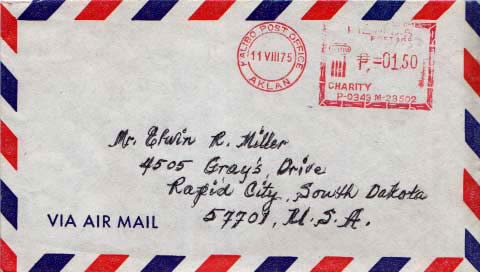 KALIBO POST OFFICE
11 VIII 75
AKLAN
POSTAGE
₱=01.50
CHARITY
P-0349 M-23502
Mr. Elwin R. Miller
4505 Gray's Drive
Rapid City, South Dakota
57701, U.S.A.
VIA AIR MAIL